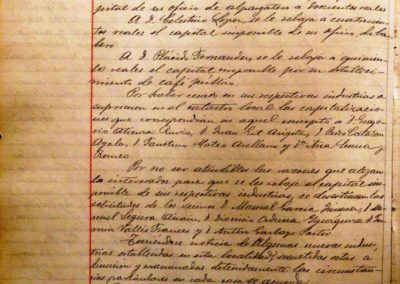 capital de su oficio de alpargatero a doscientos reales
A D. Celestino Lopez, se le rebaja a cuatrocien-
tos reales el capital imponible de su oficio, de bar-
bero
A D. Plácido Fernandez, se le rebaja a quinien-
tos reales el capital imponible por su estableci-
miento de café público.
Por haber cesado en sus respectivas industrias se
suprimen en el catastro local las capitalizacio-
nes que correspondian en aquel concepto a D.
D. Juan Gil D. Pedro
D. Faustino Mateo Arellano y Dña
Por no ser atendibles las razones que alegan
los interesados para que se les rebaje el capital im-
ponible de sus respectivas industrias, se desestiman las
solicitudes de los Srs. D. Manuel Garcia D. Ma-
nuel Segura D. Dionisio
Vallés y D.
Teniéndose noticia de algunas nuevas indus-
trias establecidas en esta localidad, sometidas estas a
discusion y examinadas detenidamente las circunstan-
cias particulares en cada una